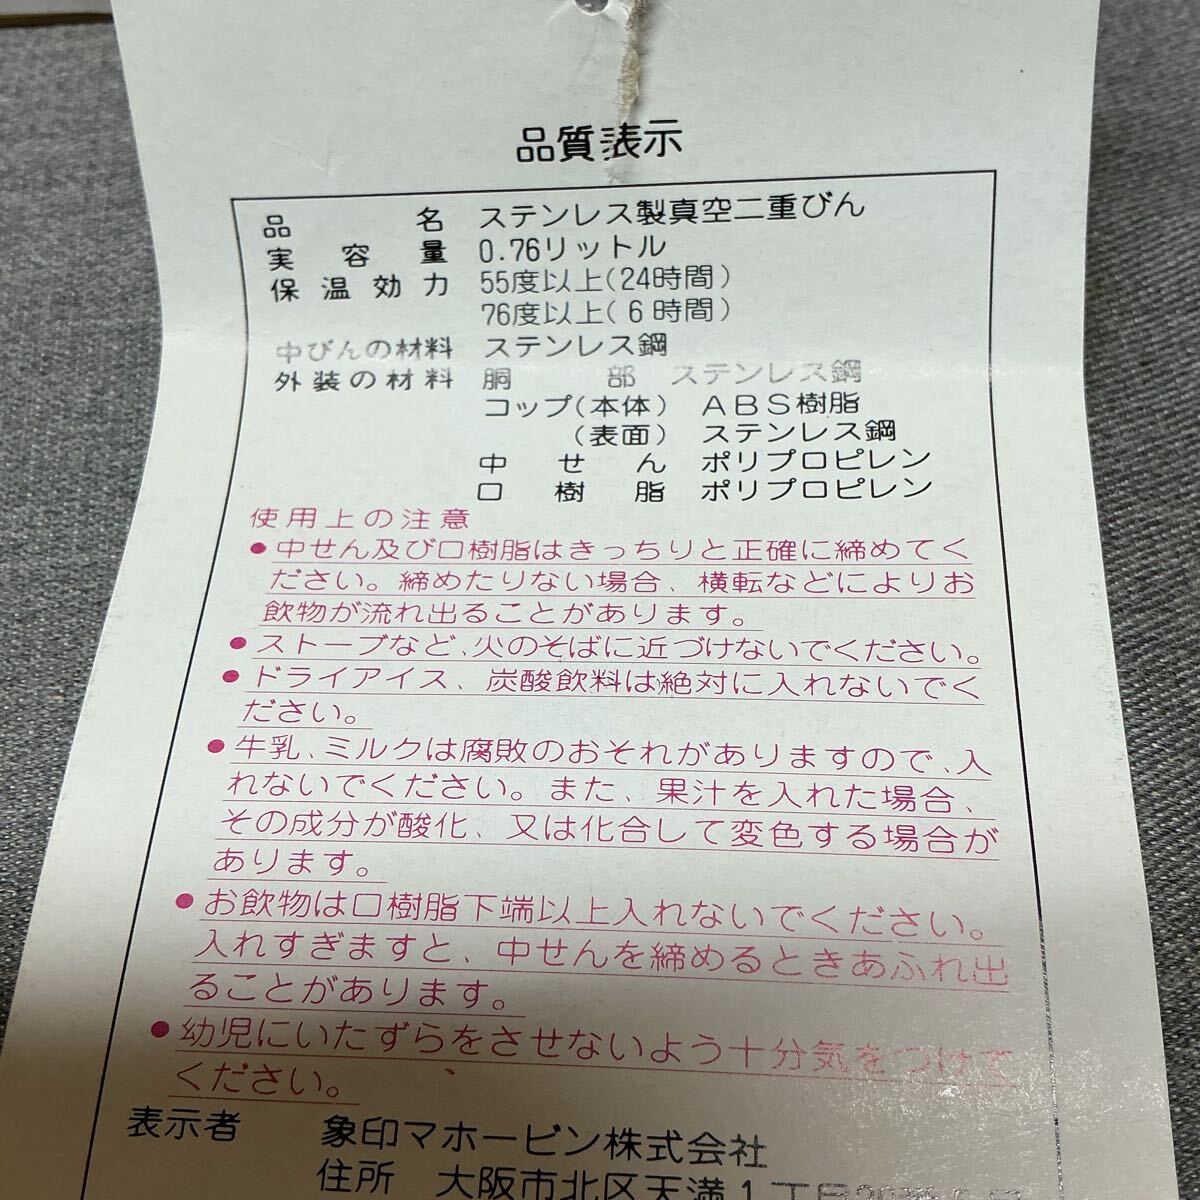 品質表示
品名 ステンレス製真空二重びん
実容量 0.76リットル
保温効力 55度以上(24時間)
76度以上(6時間)
中びんの材料 ステンレス鋼
外装の材料 胴部 ステンレス鋼
コップ(本体) ABS樹脂
(表面) ステンレス鋼
中せん ポリプロピレン
口樹脂 ポリプロピレン
使用上の注意
●中せん及び口樹脂はきっちりと正確に締めてく
ださい。締めたりない場合、横転などによりお
飲物が流れ出ることがあります。
●ストーブなど、火のそばに近づけないでください。
●ドライアイス、炭酸飲料は絶対に入れないでく
ださい。
●牛乳、ミルクは腐敗のおそれがありますので、入
れないでください。また、果汁を入れた場合、
その成分が酸化、又は化合して変色する場合が
あります。
●お飲物は口樹脂下端以上入れないでください。
入れすぎますと、中せんを締めるときあふれ出
ることがあります。
●幼児にいたずらをさせないよう十分気をつけて
ください。
表示者 象印マホービン株式会社
住所 大阪市北区天満1丁目20